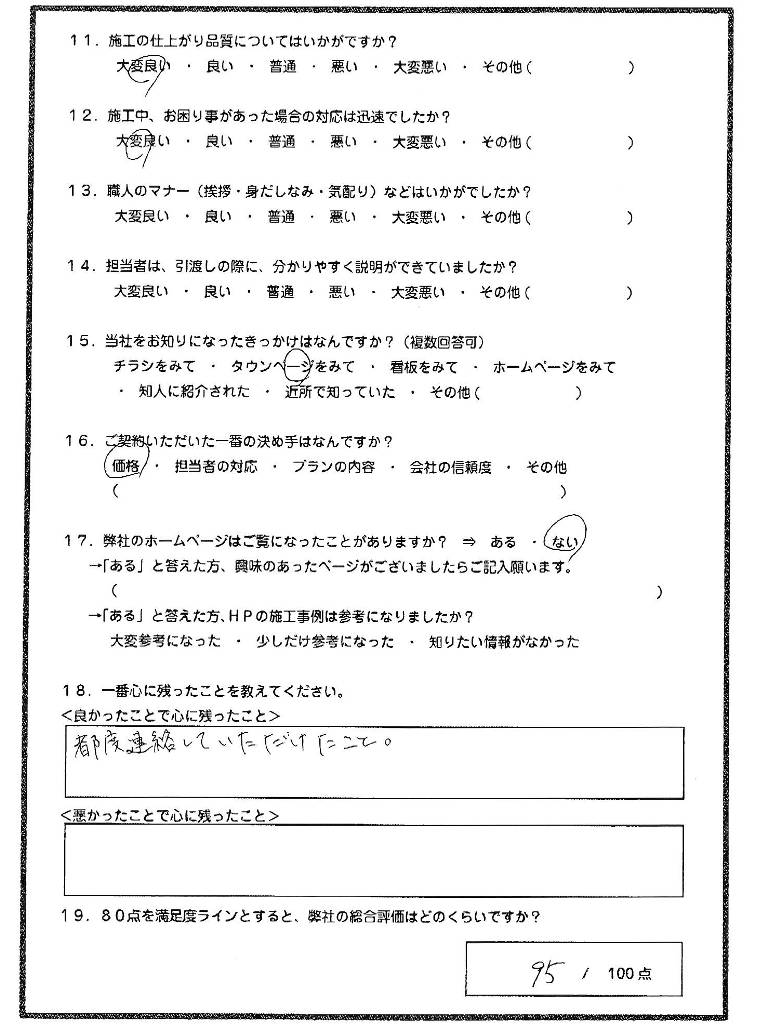 11．施工の仕上がり品質についてはいかがですか？
大変良い ・ 良い ・ 普通 ・ 悪い ・ 大変悪い ・ その他（　　　　　　　）
12．施工中、お困り事があった場合の対応は迅速でしたか？
大変良い ・ 良い ・ 普通 ・ 悪い ・ 大変悪い ・ その他（　　　　　　　）
13．職人のマナー（挨拶・身だしなみ・気配り）などはいかがでしたか？
大変良い ・ 良い ・ 普通 ・ 悪い ・ 大変悪い ・ その他（　　　　　　　）
14．担当者は、引渡しの際に、分かりやすく説明ができていましたか？
大変良い ・ 良い ・ 普通 ・ 悪い ・ 大変悪い ・ その他（　　　　　　　）
15．当社をお知りになったきっかけはなんですか？（複数回答可）
チラシをみて ・ タウンページをみて ・ 看板をみて ・ ホームページをみて
・ 知人に紹介された ・ 近所で知っていた ・ その他（　　　　　　　）
16．ご契約いただいた一番の決め手はなんですか？
価格 ・ 担当者の対応 ・ プランの内容 ・ 会社の信頼度 ・ その他
（　　　　　　　　　　　　　　　　　　　　　　　　　　　　　　）
17．弊社のホームページはご覧になったことがありますか？ ⇒ ある ・ ない
→「ある」と答えた方、興味のあったページがございましたらご記入願います。
（　　　　　　　　　　　　　　　　　　　　　　　　　　　　　　　　　　　　）
→「ある」と答えた方、ＨＰの施工事例は参考になりましたか？
大変参考になった ・ 少しだけ参考になった ・ 知りたい情報がなかった
18．一番心に残ったことを教えてください。
＜良かったことで心に残ったこと＞
都度連絡していただけたこと。
＜悪かったことで心に残ったこと＞
19．80点を満足度ラインとすると、弊社の総合評価はどのくらいですか？
95 / 100点